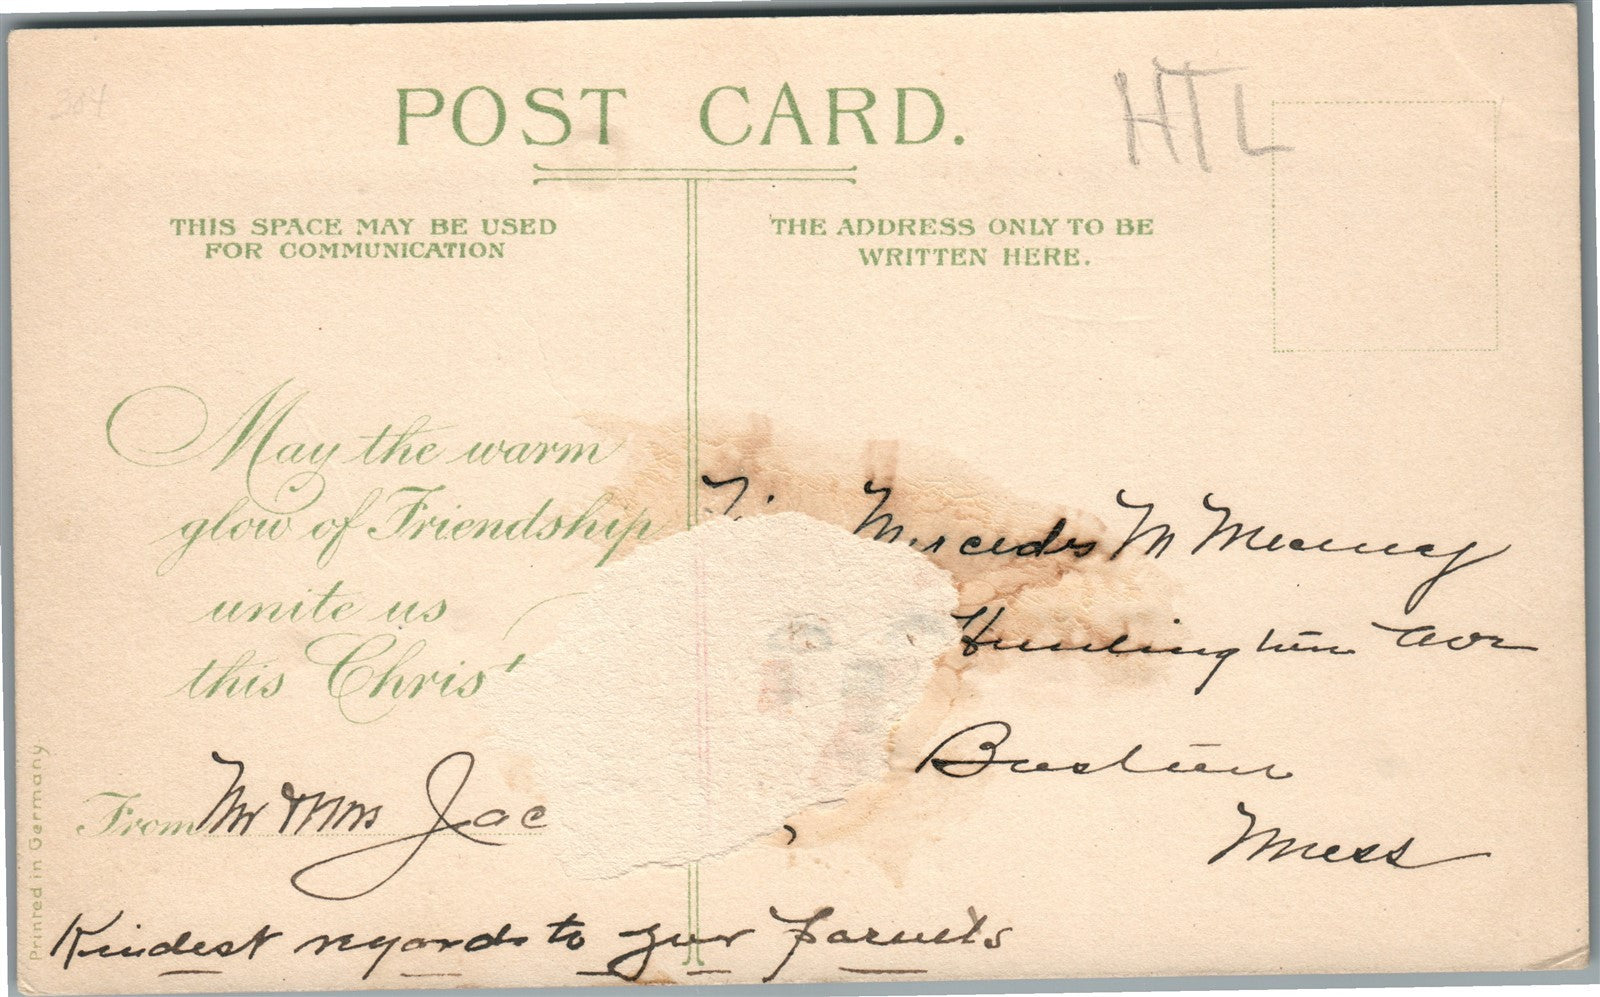 384
POST CARD.
HTL
THIS SPACE MAY BE USED
FOR COMMUNICATION
THE ADDRESS ONLY TO BE
WRITTEN HERE.
May the warm
glow of Friendship
unite us
this Christ
From Mr & Mrs Jac
Kindest regards to your parents
Mercedes M
Huntington Ave
Boston
Mass
Printed in Germany